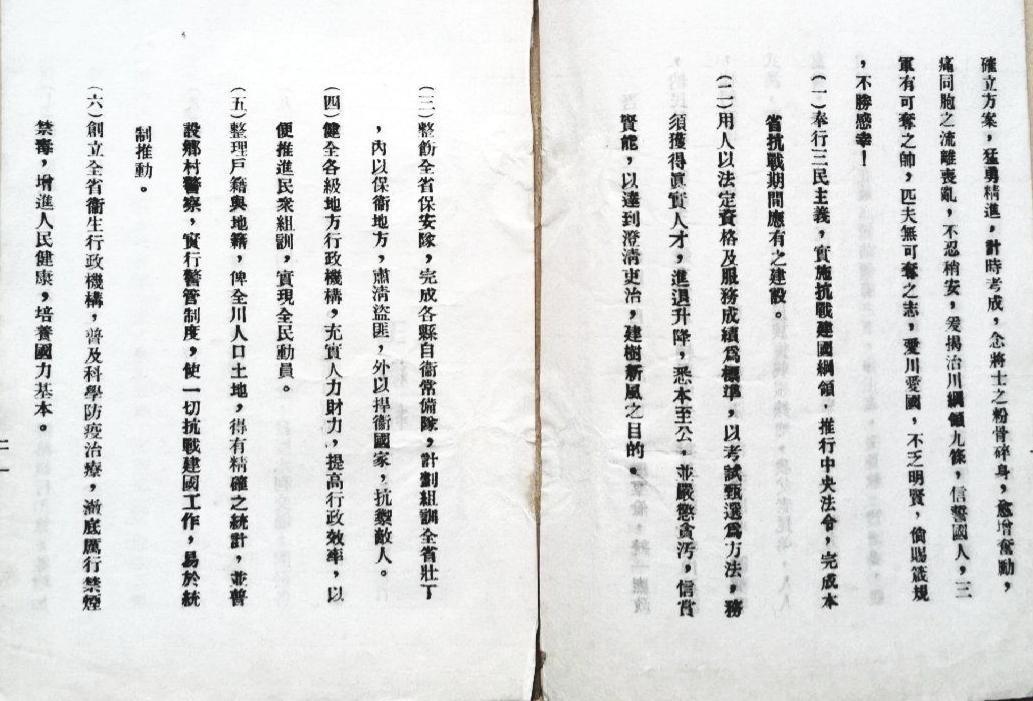 確立方案，猛勇精進，計時考成，念將士之粉骨碎身，愈增奮勵，
痛同胞之流離喪亂，不忍稍安，爰揭治川綱領九條，信誓國人，三
軍有可奪之帥，匹夫無可奪之志，愛川愛國，不乏明賢，倘賜箴規
，不勝感幸！
（一）奉行三民主義，實施抗戰建國綱領，推行中央法令，完成本
省抗戰期間應有之建設。
（二）用人以法定資格及服務成績爲標準，以考試甄選爲方法，務
須獲得眞實人才，進退升降，悉本至公，並嚴懲貪汚，信賞
賢能，以達到澄清吏治，建樹新風之目的。
（三）整飭全省保安隊，完成各縣自衞常備隊，計劃組訓全省壯丁
，內以保衞地方，肅清盜匪，外以捍衞國家，抗禦敵人。
（四）健全各級地方行政機構，充實人力財力，提高行政效率，以
便推進民衆組訓，實現全民動員。
（五）整理戶籍與地籍，俾全川人口土地，得有精確之統計，並普
設鄉村警察，實行警管制度，使一切抗戰建國工作，易於統
制推動。
（六）創立全省衞生行政機構，普及科學防疫治療，澈底厲行禁煙
禁毒，增進人民健康，培養國力基本。